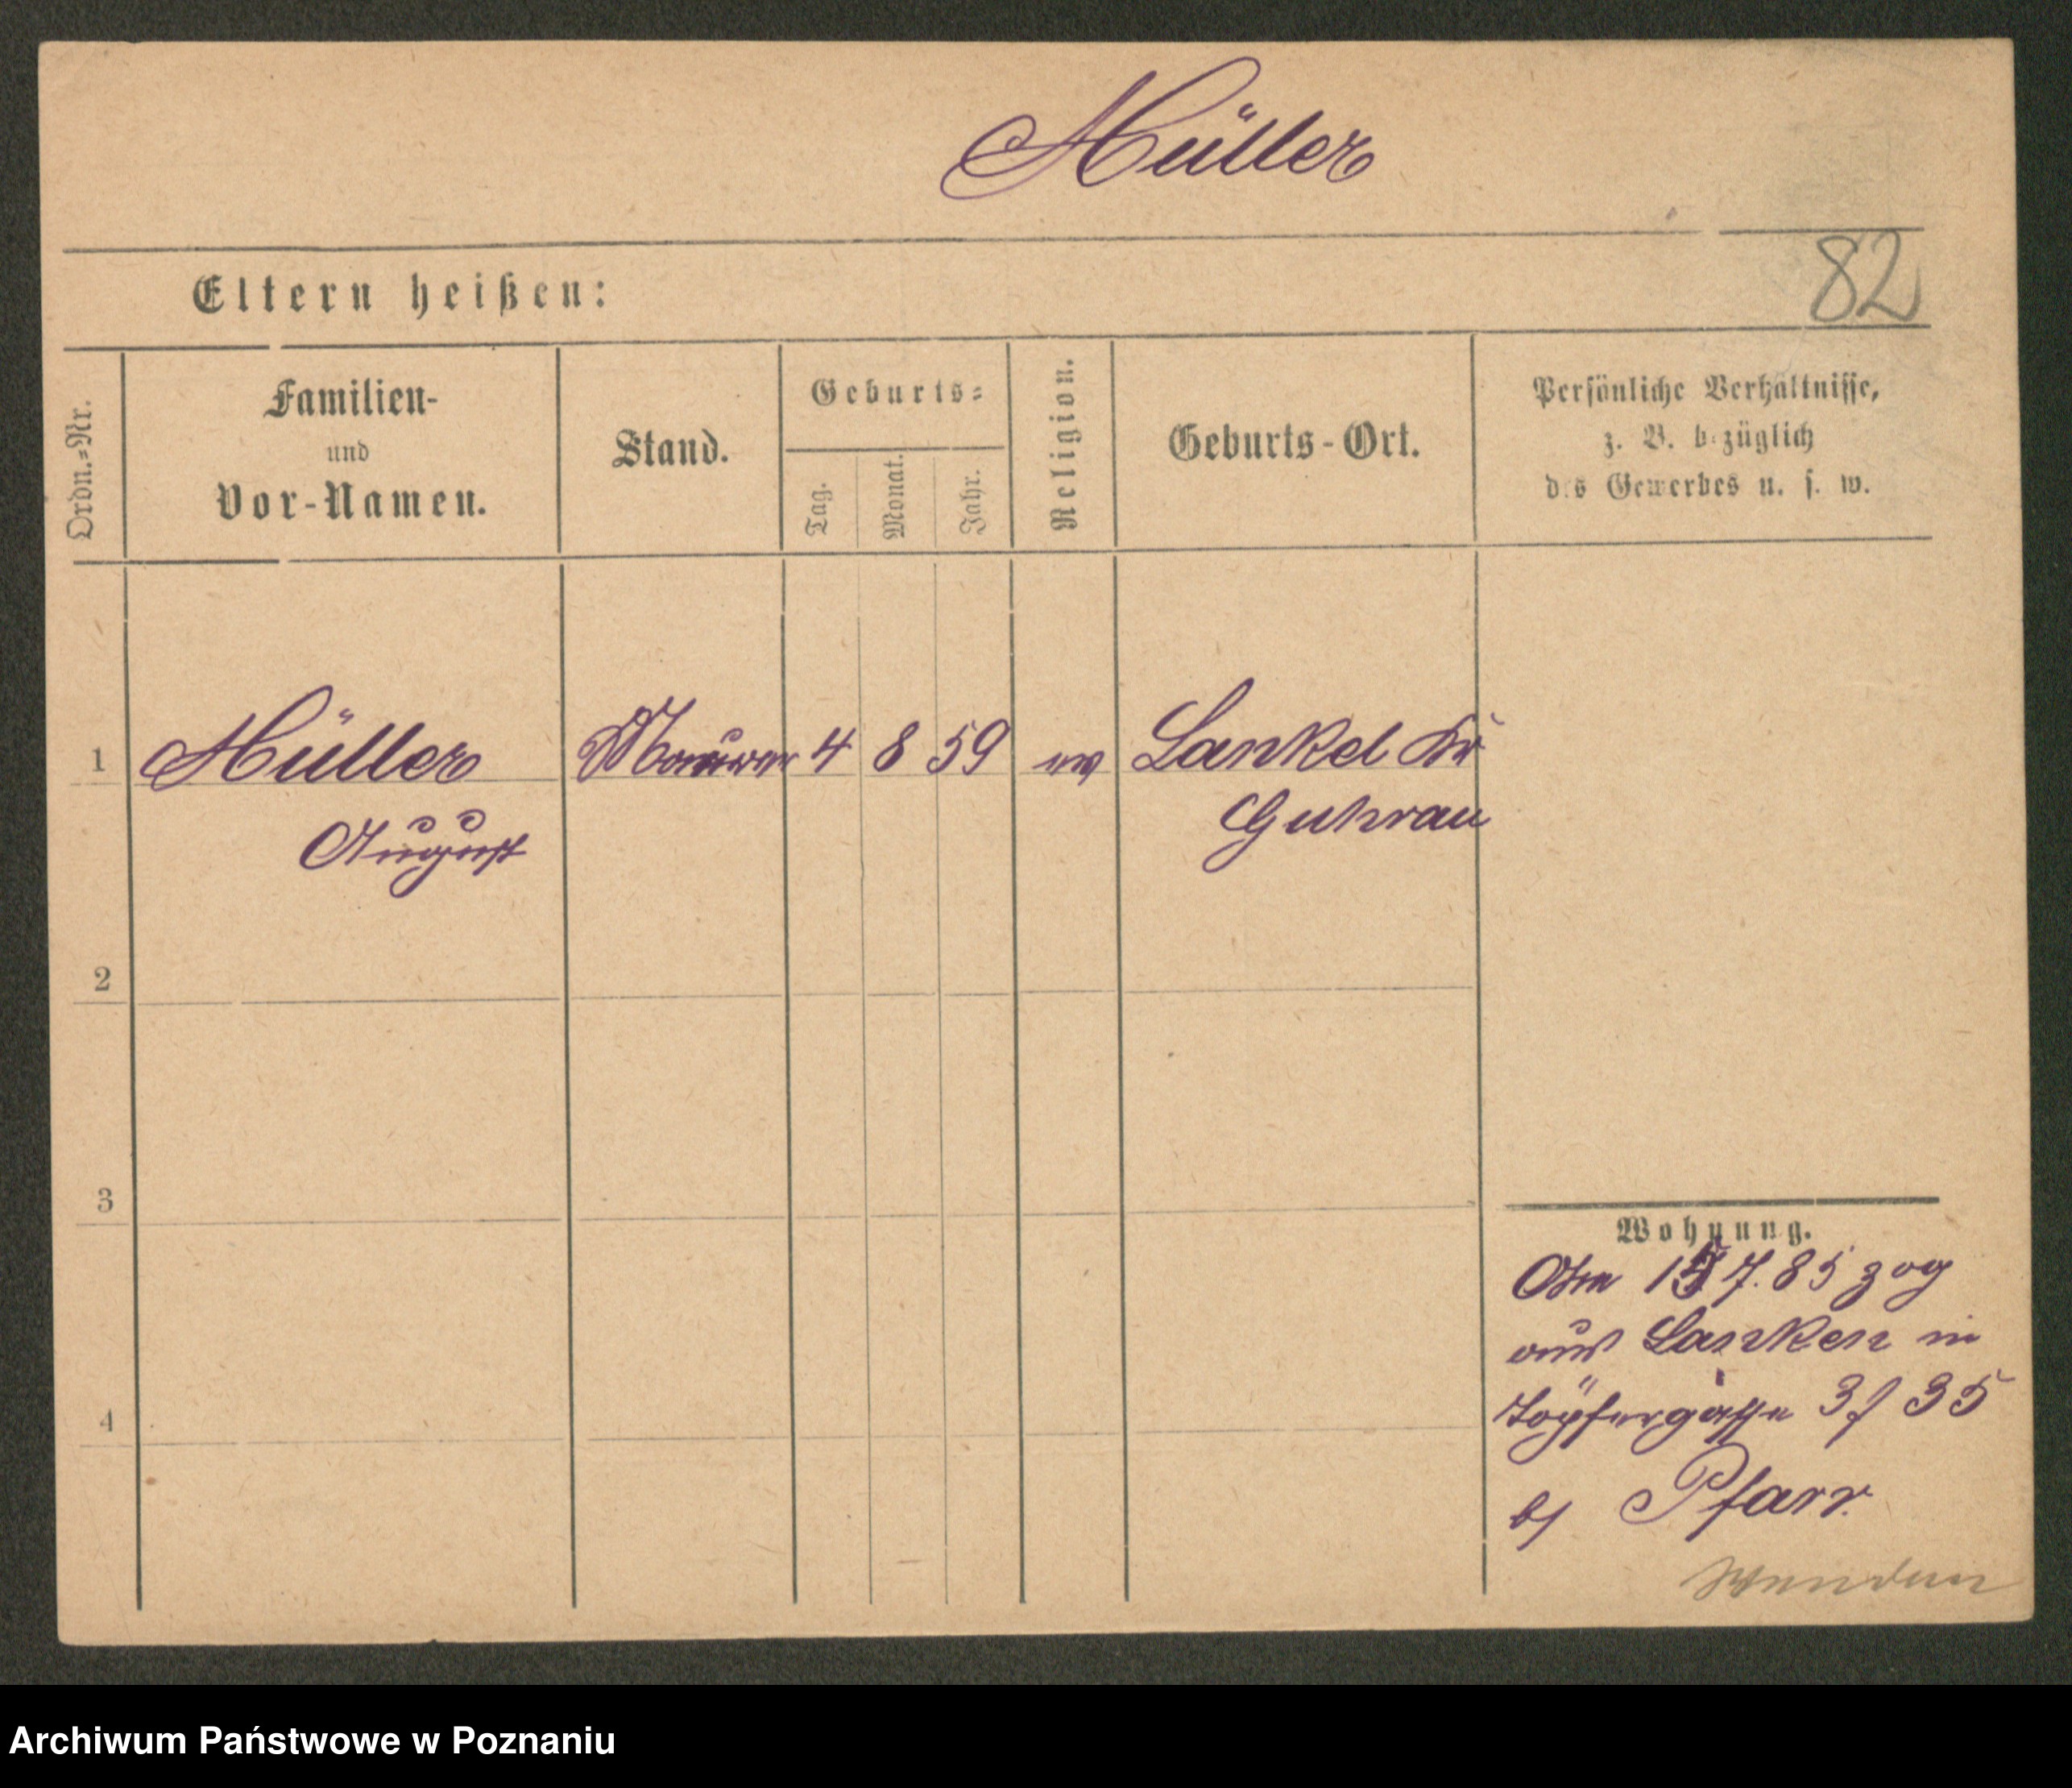 Müller
82
Eltern heißen:
Ordn.-Nr.
Familien-
und
Vor-Namen.
Stand.
Geburts-
Tag.
Monat.
Jahr.
Religion.
Geburts-Ort.
Persönliche Verhältnisse,
z. B. bezüglich
des Gewerbes u. s. w.
1 Müller Maurer 4 8 59 ev Lankel Kr
August Guhrau
2
3
4
Wohnung.
Am 7.85 zog
aus Lanken in
Töpfergasse 3/35
b/ Pfarr.
Wenden
Archiwum Państwowe w Poznaniu